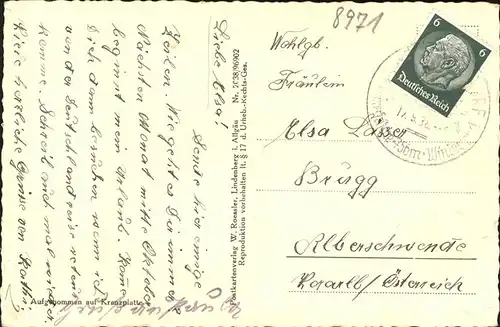 8971
Liebe Elsa!
Sende hier einige
Zeilen. Wie geht es Dir immer
Nächsten Monat mitte Oktober
beginnt mein Urlaub. Komme
Dich dann besuchen wenn ich
von der Deutschlandreise retour
komme. Schreib auch mal wieder
Viele herzliche Grüsse von
Aufgenommen auf Kranzplatte
Postkartenverlag W. Roessler, Lindenberg i. Allgäu Nr. 2C38/96902
Reproduktion vorbehalten lt. § 17 d. Urheb.-Rechts-Ges.
6 6
Deutsches Reich
Wohlgb.
Fräulein
Elsa Lässer
Brugg
Alberschwende
Vorarlb/Österreich